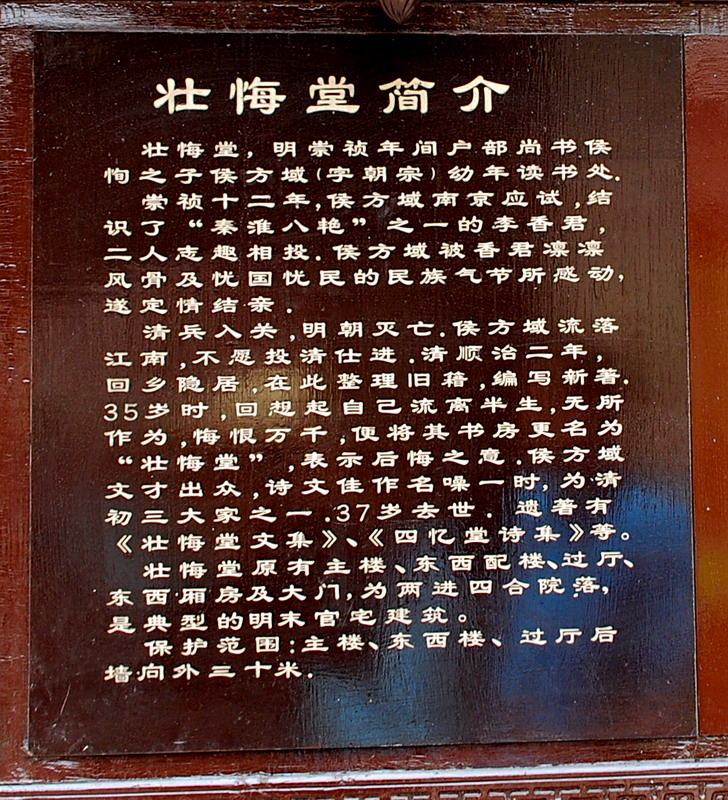 壮悔堂简介
壮悔堂，明崇祯年间户部尚书侯
恂之子侯方域(字朝宗)幼年读书处.
崇祯十二年,侯方域南京应试,结
识了“秦淮八艳”之一的李香君,
二人志趣相投.侯方域被香君凛凛
风骨及忧国忧民的民族气节所感动,
遂定情结亲.
清兵入关,明朝灭亡.侯方域流落
江南,不愿投清仕进.清顺治二年,
回乡隐居,在此整理旧藉,编写新著.
35岁时,回想起自己流离半生,无所
作为,悔恨万千,便将其书房更名为
“壮悔堂”,表示后悔之意.侯方域
文才出众,诗文佳作名噪一时,为清
初三大家之一.37岁去世.遗著有
《壮悔堂文集》、《四忆堂诗集》等。
壮悔堂原有主楼、东西配楼、过厅、
东西厢房及大门,为两进四合院落,
是典型的明末官宅建筑。
保护范围:主楼、东西楼、过厅后
墙向外三十米.